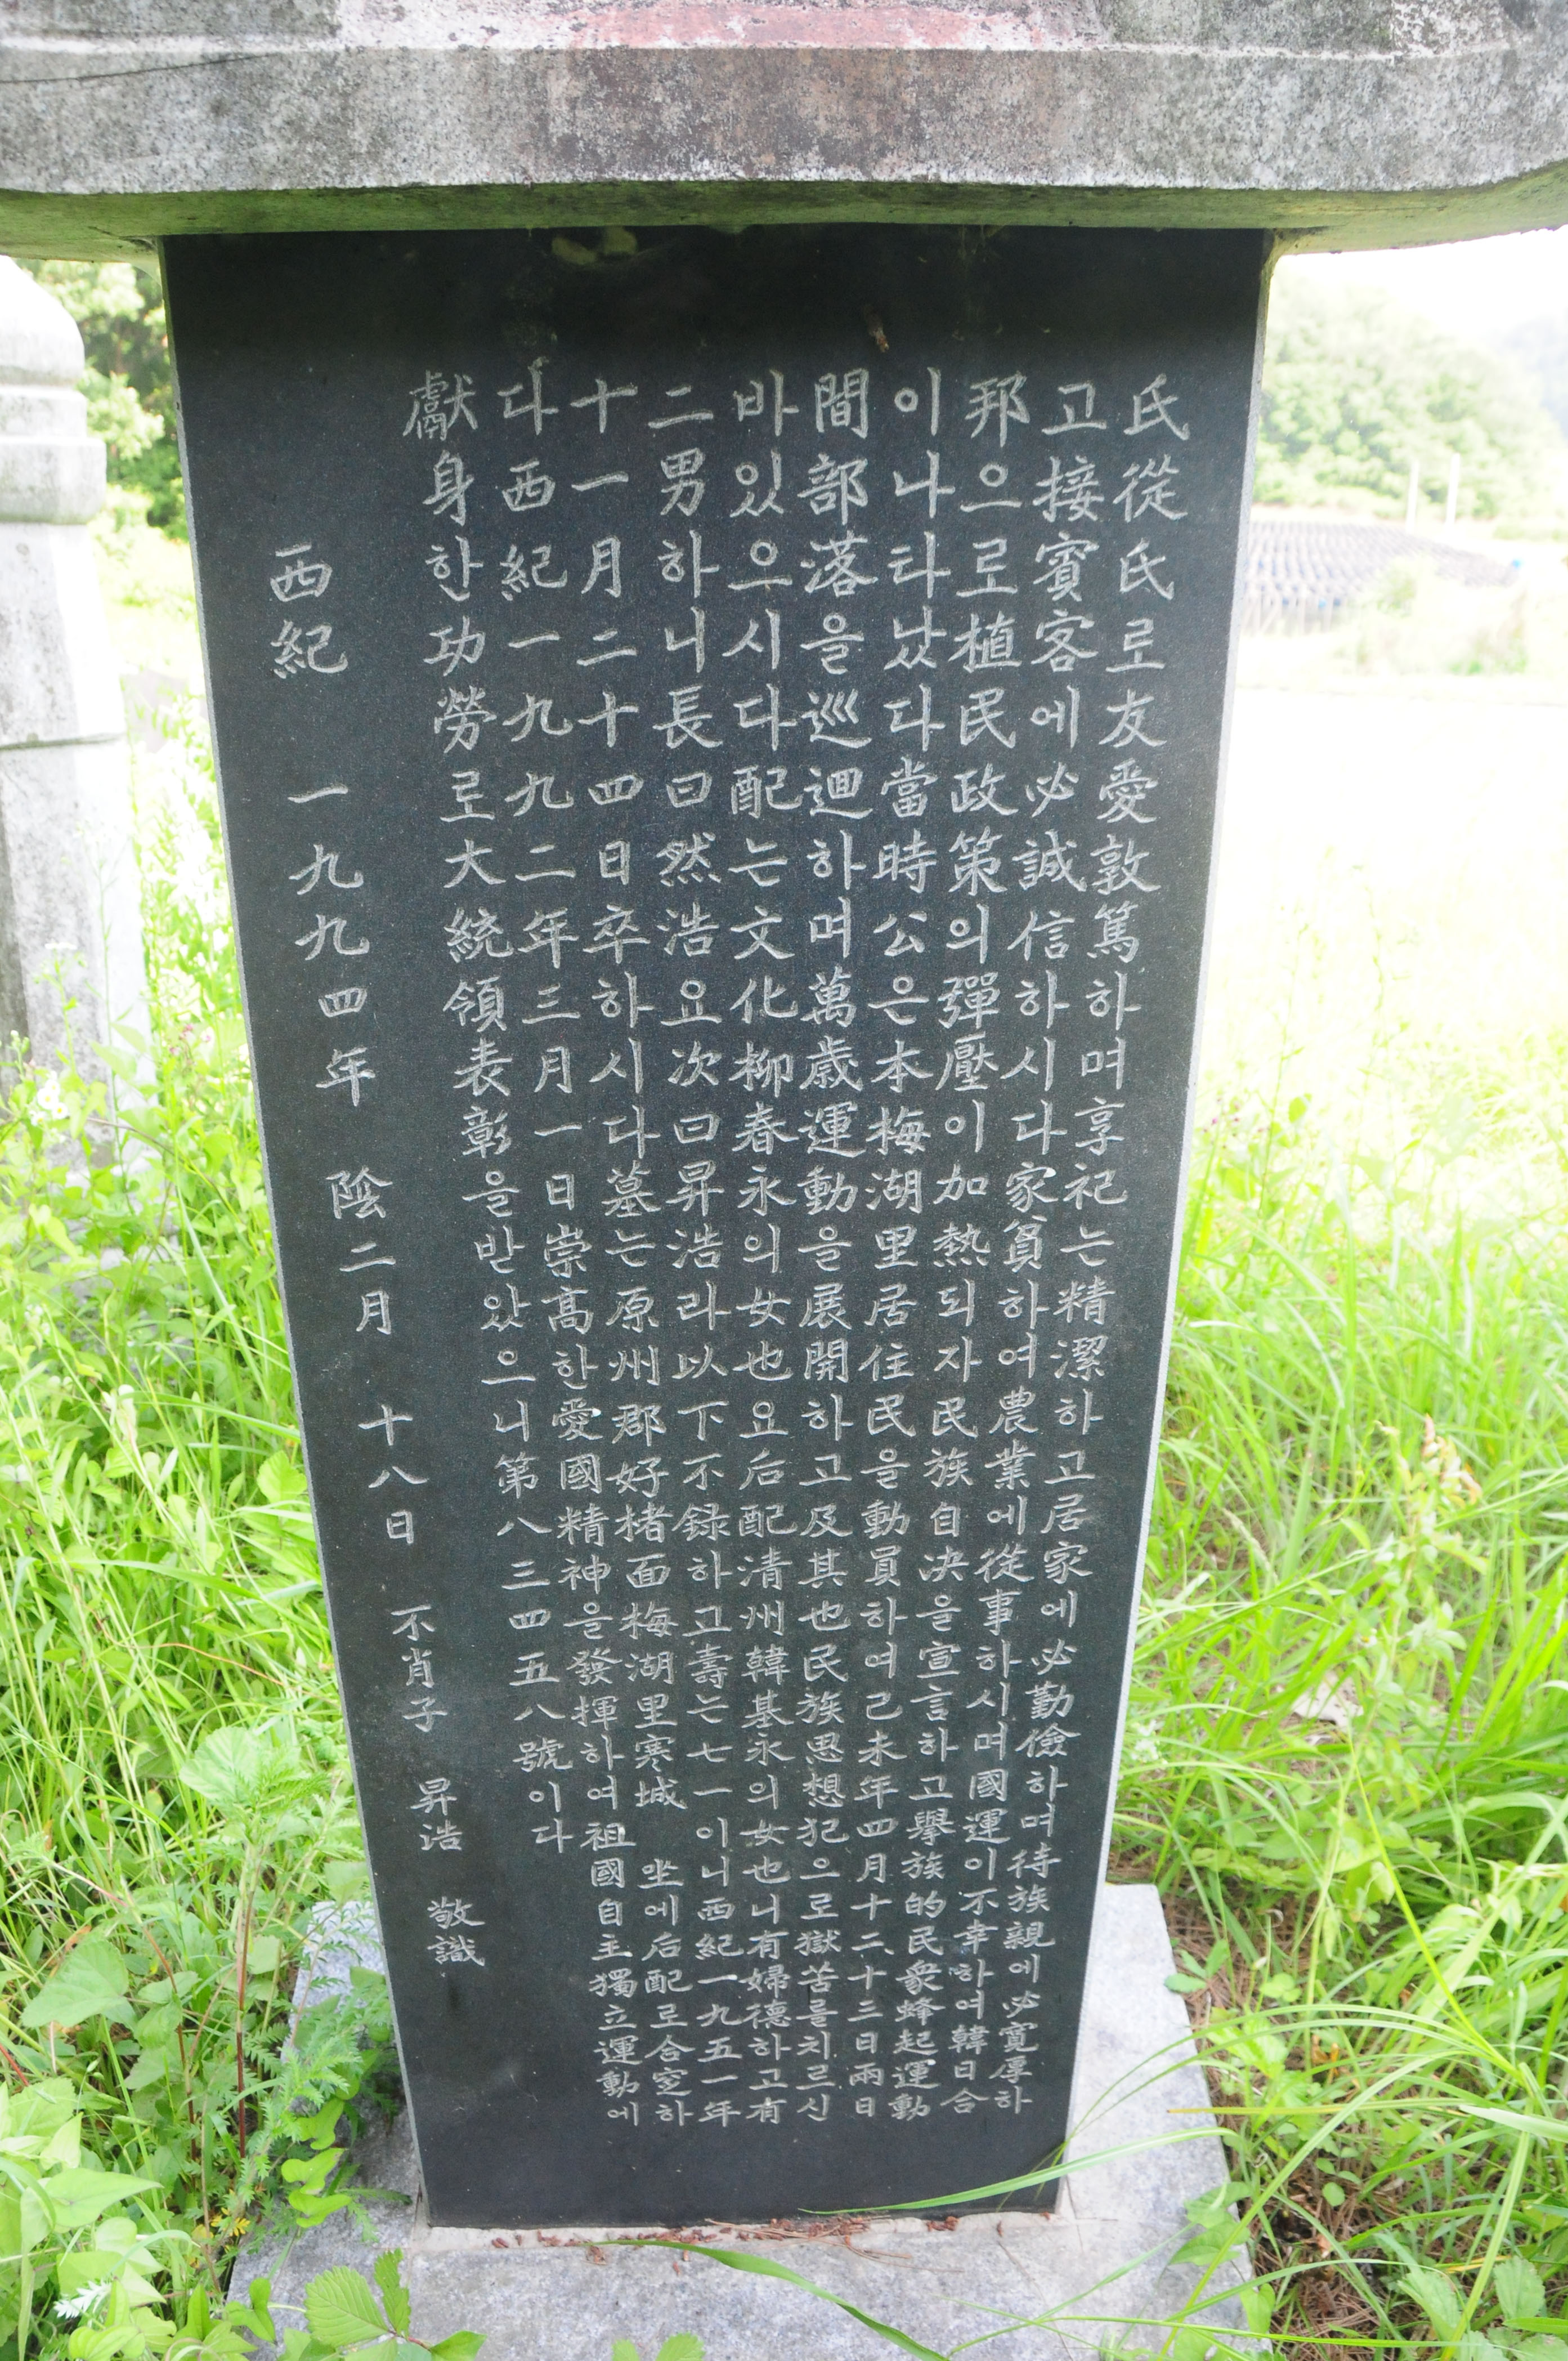 氏從氏로友愛敦篤하며享祀는精潔하고居家에必勤儉하며待族親에必寬厚하
고接賓客에必誠信하시다家貧하여農業에從事하시며國運이不幸하여韓日合
邦으로植民政策의彈壓이加熱되자民族自決을宣言하고擧族的民衆蜂起運動
이나타났다當時公은本梅湖里居住民을動員하여己未年四月十二十三日兩日
間部落을巡廻하며萬歲運動을展開하고及其也民族思想犯으로獄苦를치르신
바있으시다配는文化柳春永의女也요后配淸州韓基永의女也니有婦德하고有
二男하니長曰然浩요次曰昇浩라以下不録하고壽는七一이니西紀一九五一年
十一月二十四日卒하시다墓는原州郡好楮面梅湖里寒城 坐에后配로合窆하
다西紀一九九二年三月一日崇高한愛國精神을發揮하여祖國自主獨立運動에
獻身한功勞로大統領表彰을받았으니第八三四五八號이다
西紀 一九九四年 陰二月 十八日 不肖子 昇浩 敬識